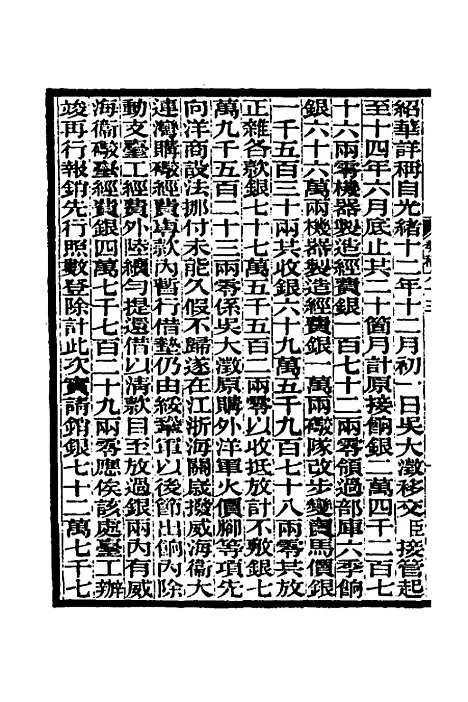 紹華詳稱自光緒十二年十二月初一日吳大澂移交臣接管起
至十四年六月底止共二十箇月計原接餉銀二萬四千二百七
十六兩零機器製造經費銀一百七十二兩零領過部庫六季餉
銀六十六萬兩機器製造經費銀一萬兩礮隊改步變賣馬價銀
一千五百三十兩共收銀六十九萬五千九百七十八兩零共放
正雜各款銀七十七萬五千五百二兩零以收抵放計不敷銀七
萬九千五百二十三兩零係吳大澂原購外洋軍火價腳等項先
向洋商設法挪付未能久假不歸遂在江浙海關咸撥威海衞大
連灣購礮經費專款內暫行借墊仍由綏鞏軍以後節出餉內除
動支臺工經費外陸續勻提還借以清款目至放過銀兩內有威
海衞礮臺經費銀四萬七千七百二十九兩零應俟該處臺工辦
竣再行報銷先行照數登除計此次實請銷銀七十二萬七千七